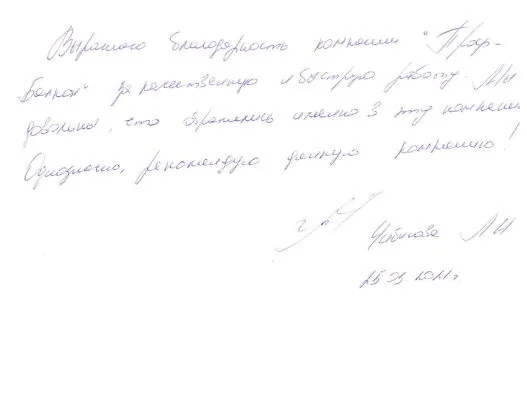 Выражаю благодарность компании "Проф-
Балкон" за качественную и быструю работу. Мы
довольны, что обратились именно в эту компанию
Однозначно, рекомендую данную компанию!
ЛИ